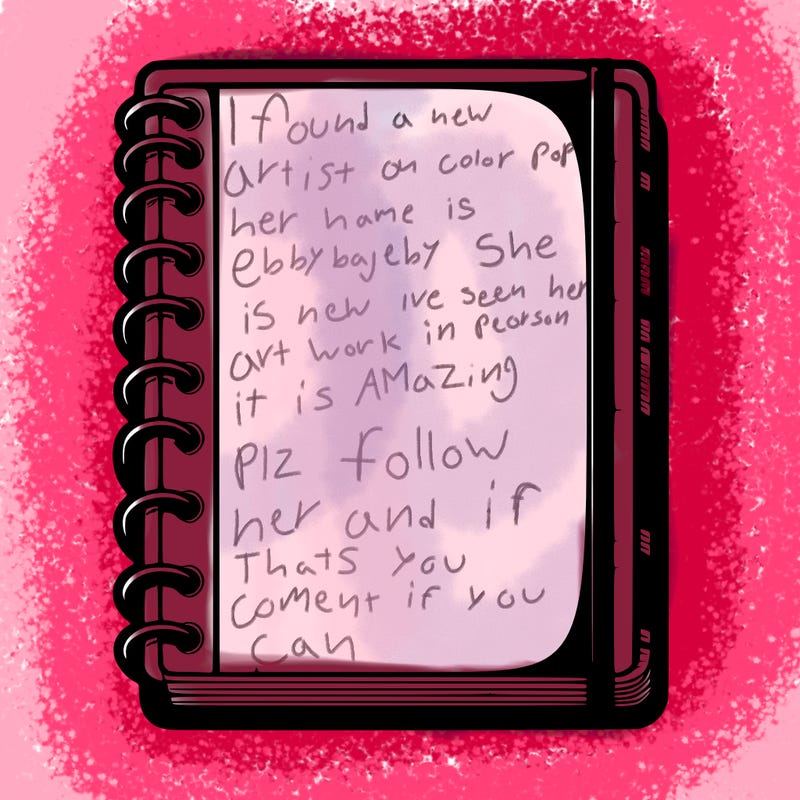 I found a new
artist on color pop
her name is
ebbybajeby She
is new ive seen her
art work in pearson
it is AMaZing
Plz follow
her and if
Thats you
coment if you
can